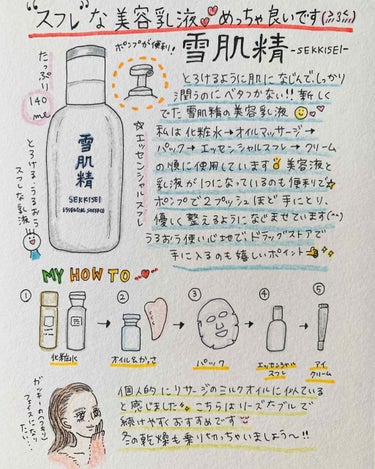 "スフレ"な美容乳液めっちゃ良いです(≧3≦)
ポンプが便利!
雪肌精 -SEKKISEI-
たっぷり
140
ml
雪肌精
SEKKISEI
☆エッセンシャルスフレ
とろける・うるおう
スフレな乳液
とろけるように肌になじんで、しっかり
潤うのにベタつかない!! 新しく
でた雪肌精の美容乳液
私は化粧水→オイルマッサージ→
パック→エッセンシャルスフレ→クリーム
の順に使用しています 美容液と
乳液が1つになっているのも便利で
ポンプで2プッシュほど手にとり、
優しく整えるようになじませています(^^)
うるおう使い心地で、ドラッグストアで
手に入るのも嬉しいポイント
MY HOW TO
① ② ③ ④ ⑤
化粧水
オイル&かっさ
パック
エッセンシャル
スフレ
アイ
クリーム
フェイスになり
たい...
個人的にリサージのミルクオイルに似ている
と感じました こちらはリーズナブルで
続けやすくおすすめです
冬の乾燥も乗り切っちゃいましょう〜!!